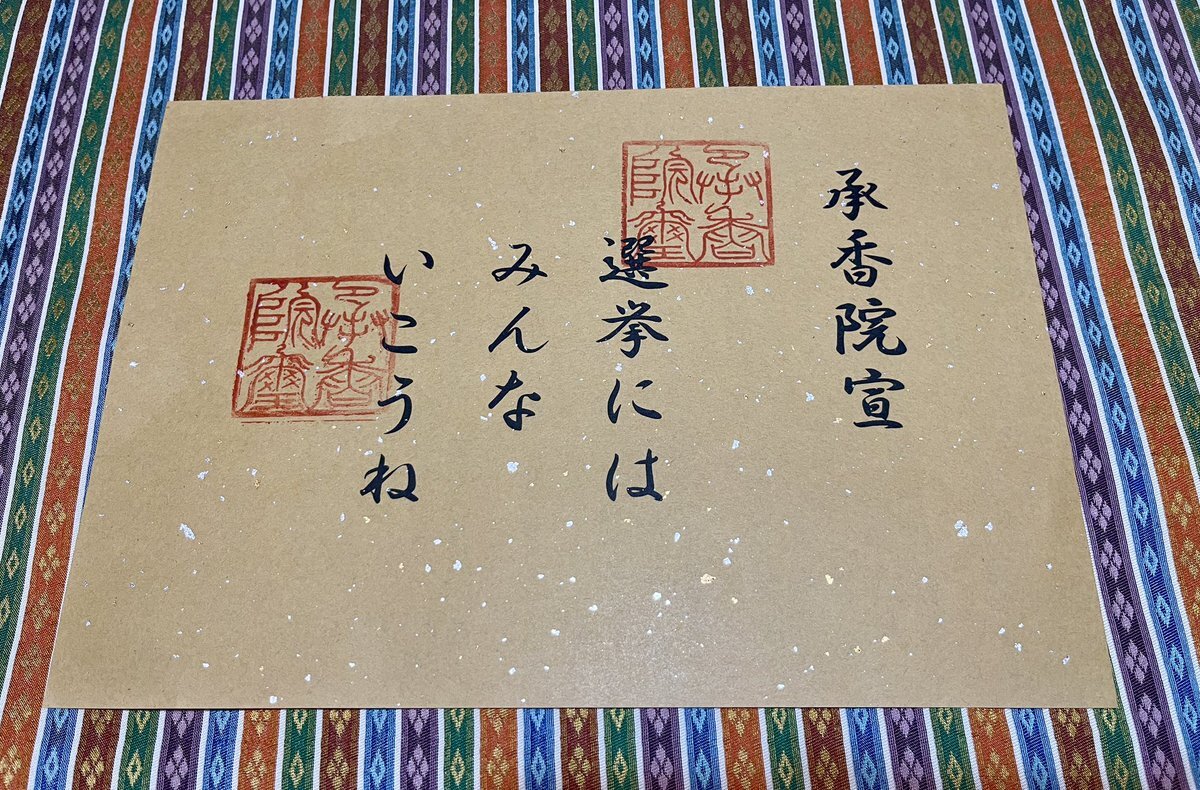 承香院宣
選挙には
みんな
いこうね
承香院璽
承香院璽